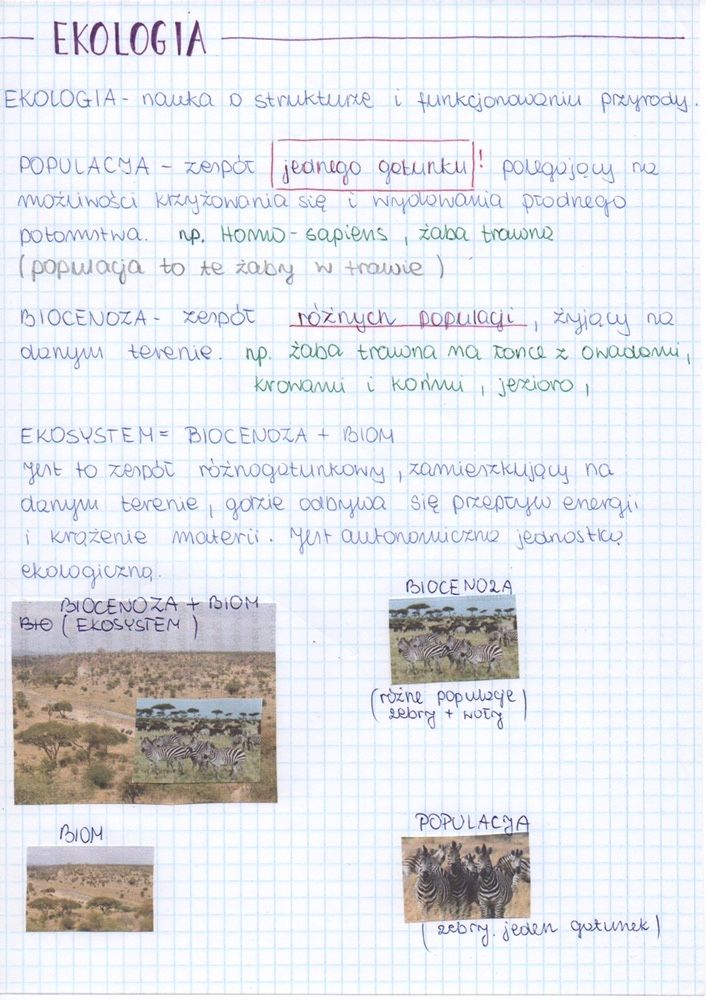 EKOLOGIA
EKOLOGIA - nauka o strukturze i funkcjonowaniu przyrody.
POPULACJA - zespół jednego gatunku! polegający na
możliwości krzyżowania się i wydawania płodnego
potomstwa. np. Homo-sapiens, żaba trawna
(populacja to te żaby w trawie)
BIOCENOZA - zespół różnych populacji, żyjący na
danym terenie. np. żaba trawna na łące z owadami,
krowami i końmi, jezioro,
EKOSYSTEM = BIOCENOZA + BIOM
Jest to zespół różnogatunkowy, zamieszkujący na
danym terenie, gdzie odbywa się przepływ energii
i krążenie materii. Jest autonomiczną jednostką
ekologiczną.
BIOCENOZA + BIOM
BIO (EKOSYSTEM)
BIOCENOZA
(różne populacje
zebry + woły)
BIOM
POPULACJA
(zebry. jeden gatunek)